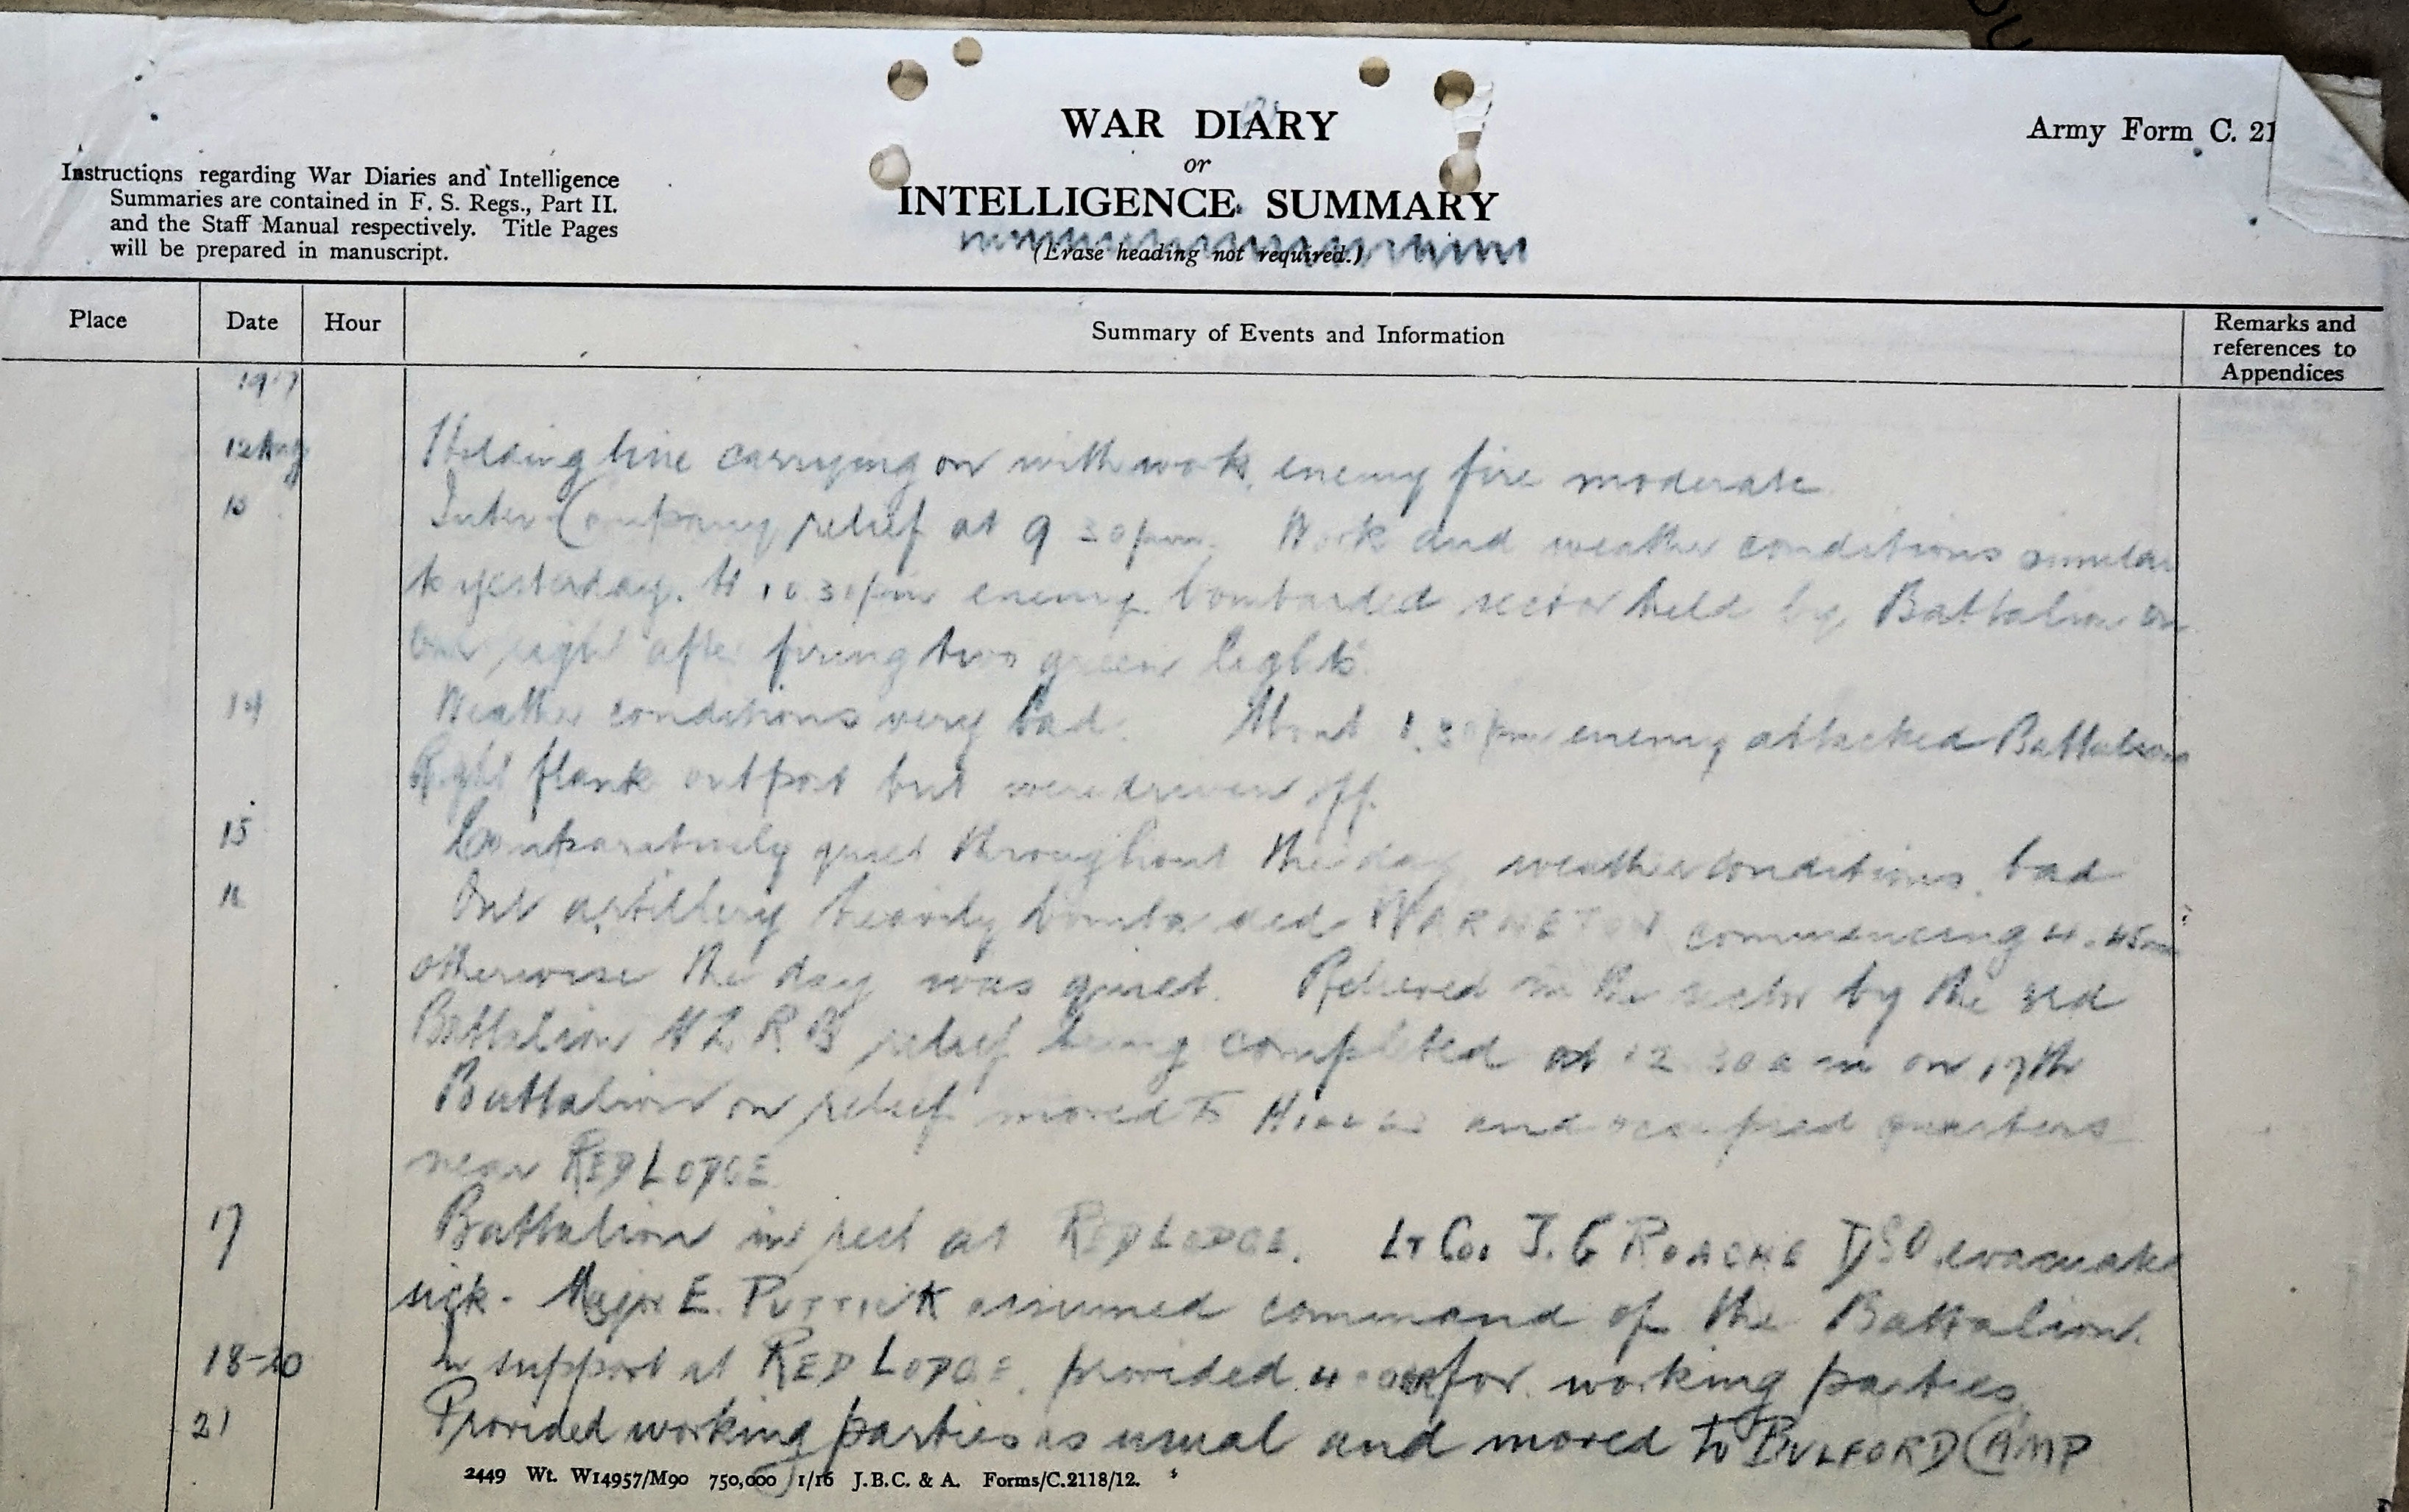 WAR DIARY
or
INTELLIGENCE SUMMARY
(Erase heading not required.)
Army Form C. 21
Instructions regarding War Diaries and Intelligence
Summaries are contained in F. S. Regs., Part II.
and the Staff Manual respectively. Title Pages
will be prepared in manuscript.
Place Date Hour Summary of Events and Information Remarks and references to Appendices
1917
12 Aug Holding line carrying on with work, enemy fire moderate
13 Inter-Company relief at 9 30 pm. Work and weather conditions similar
to yesterday. At 10 30 pm enemy bombarded sector held by Battalion on
our right after firing two green lights.
14 Weather conditions very bad. About pm enemy attacked Battalion
Right flank outpost but were driven off.
15 Comparatively quiet throughout the day weather conditions bad
16 Our artillery heavily bombarded WARNETON commencing 4.45
otherwise the day was quiet. Relieved in the sector by the 3rd
Battalion N Z R B relief being completed at 12 30 a m on 17th
Battalion on relief moved to and occupied quarters
near RED LODGE
17 Battalion in rest at RED LODGE. Lt Col J. G ROACHE DSO evacuated
sick. Major E. PUTTICK assumed command of the Battalion.
18-20 In support at RED LODGE. provided for working parties.
21 Provided working parties as usual and moved to BULFORD CAMP
2449 Wt. W14957/M90 750,000 1/16 J.B.C. & A. Forms/C.2118/12.